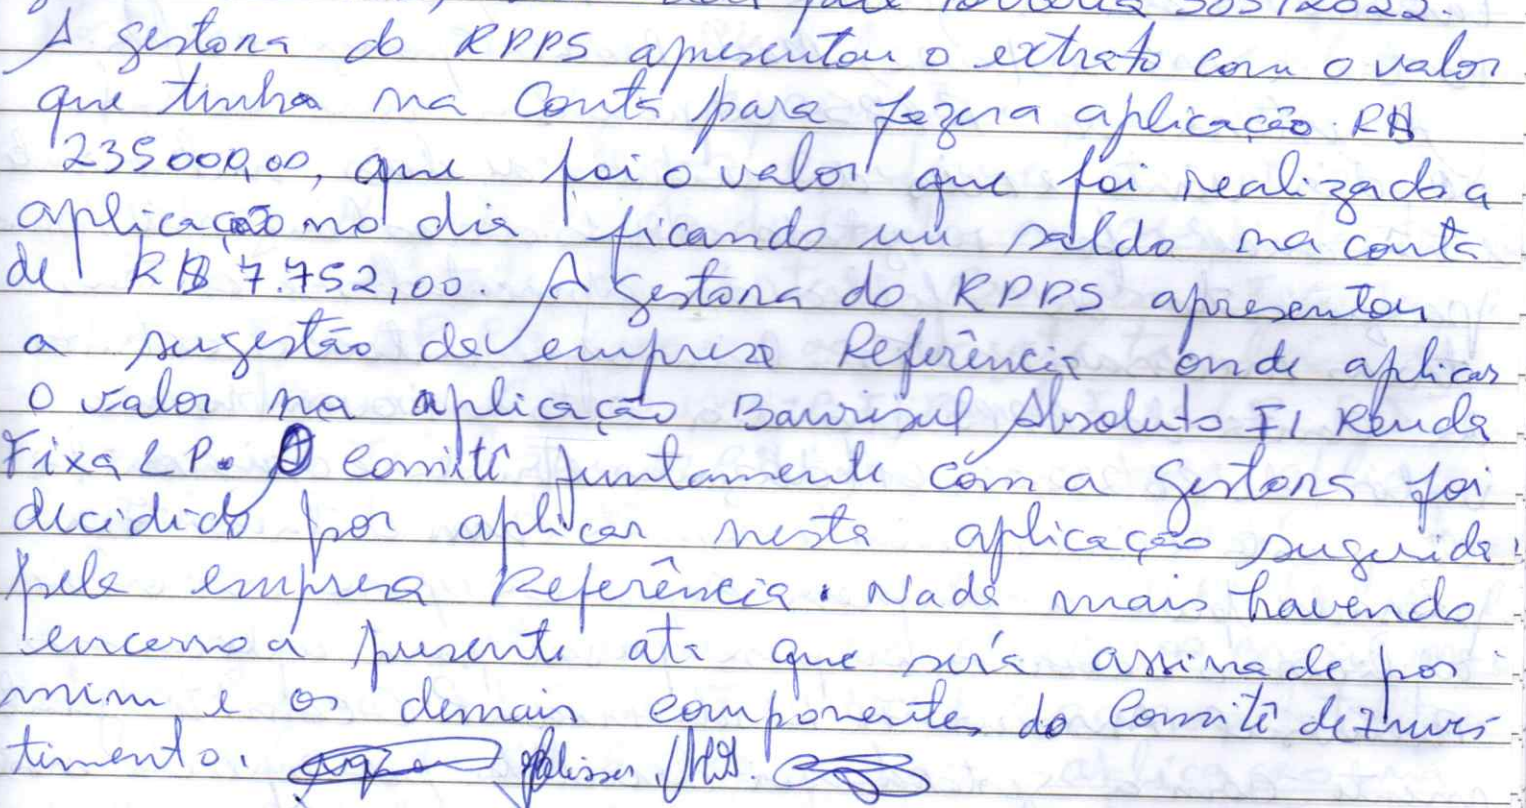 pela Portaria 303/2022.
A gestora do RPPS apresentou o extrato com o valor
que tinha na Conta para fazer a aplicação R$
235000,00, que foi o valor que foi realizado a
aplicação no dia ficando um saldo na conta
de R$ 7.752,00. A gestora do RPPS apresentou
a sugestão da empresa Referência onde aplicar
o valor na aplicação Banrisul Absoluto FI Renda
Fixa LP. O Comitê juntamente com a gestora foi
decidido por aplicar nesta aplicação sugerida
pela empresa Referência. Nada mais havendo
encerro a presente ata que será assinada por
mim e os demais componentes do Comitê de Inves
timento.